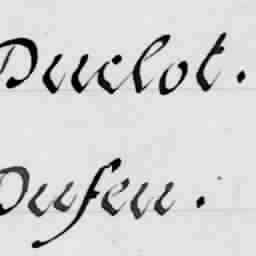 Duclot.
Dufeu.